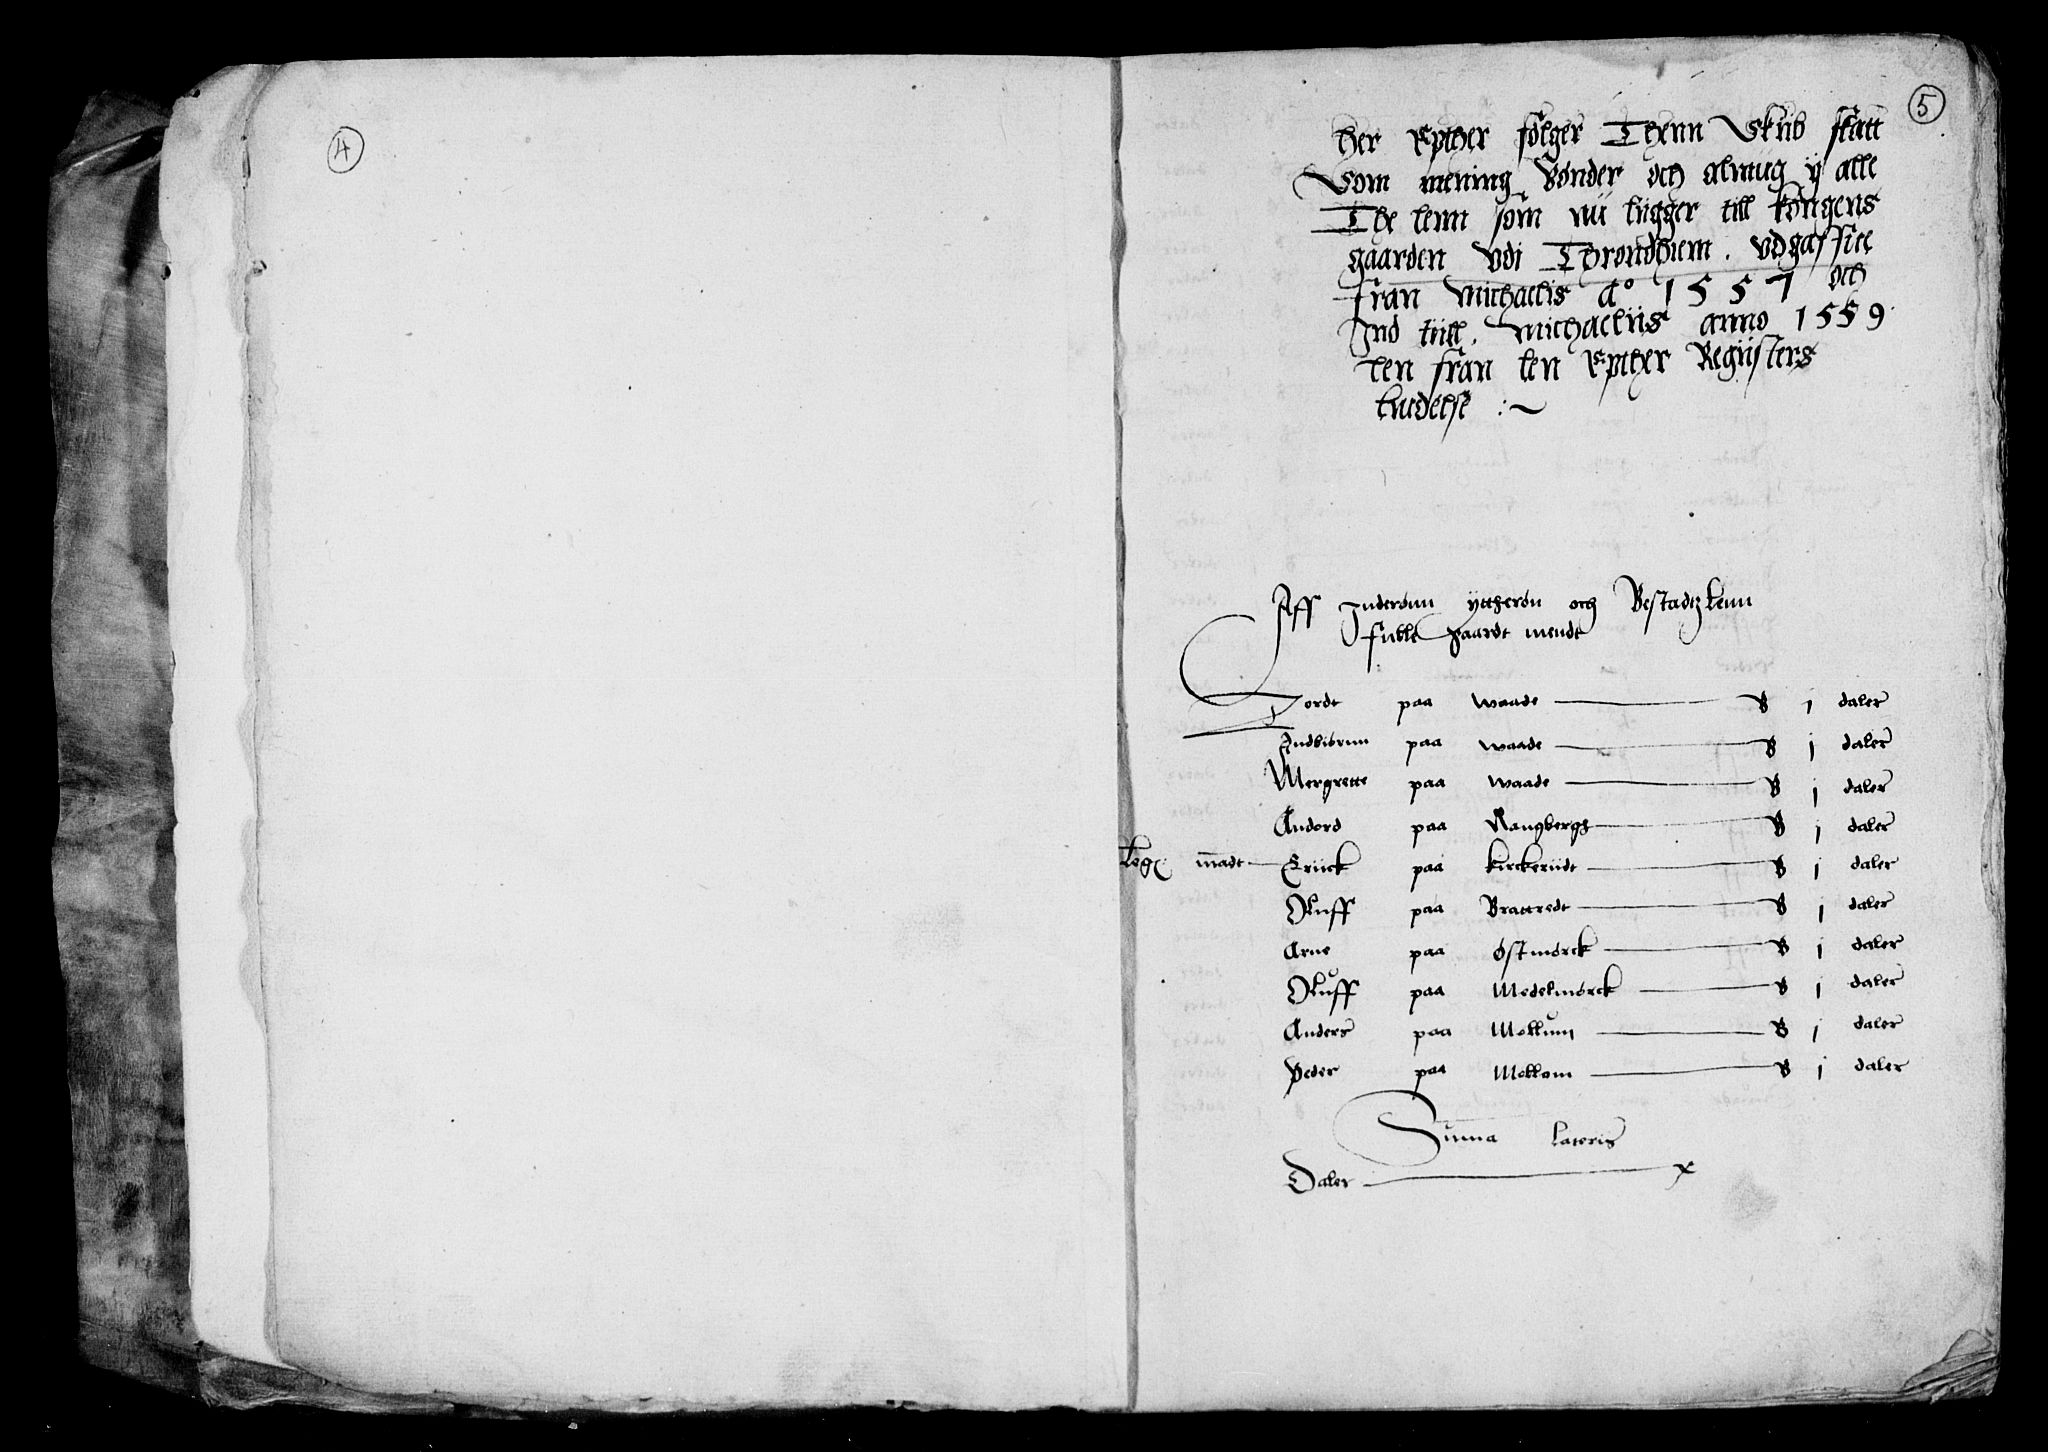 4
5
Her Epther følger Thenn Skib skatt
Som mening Bønder och almug y alle
The lenn som nu liigger till kongens
gaarden vdi Throndhiem. vdgaffue
fran Michaelis Ao 1557 och
Ind tiill. Michaeliis anno 1559.
len fran len Epther Regiisters
liudelse :~
Aff Inderønn yttherøn och Bestadz lenn
fulle gaardt mendt
Tordt paa Waade — B 1 daler
Indbiørnn paa Waade — B j daler
Mergrette paa Waade — B j daler
Andord paa Rangbergs — B j daler
Legz madt — Eriick paa Kirckeriidt — B j daler
Oluff paa Brattredt — B j daler
Arne paa Østmørck — B j daler
Oluff paa Medelmørck — B j daler
Anders paa Mollum — B j daler
Peder paa Mollom — B j daler
Summa Lateris
Daler — x